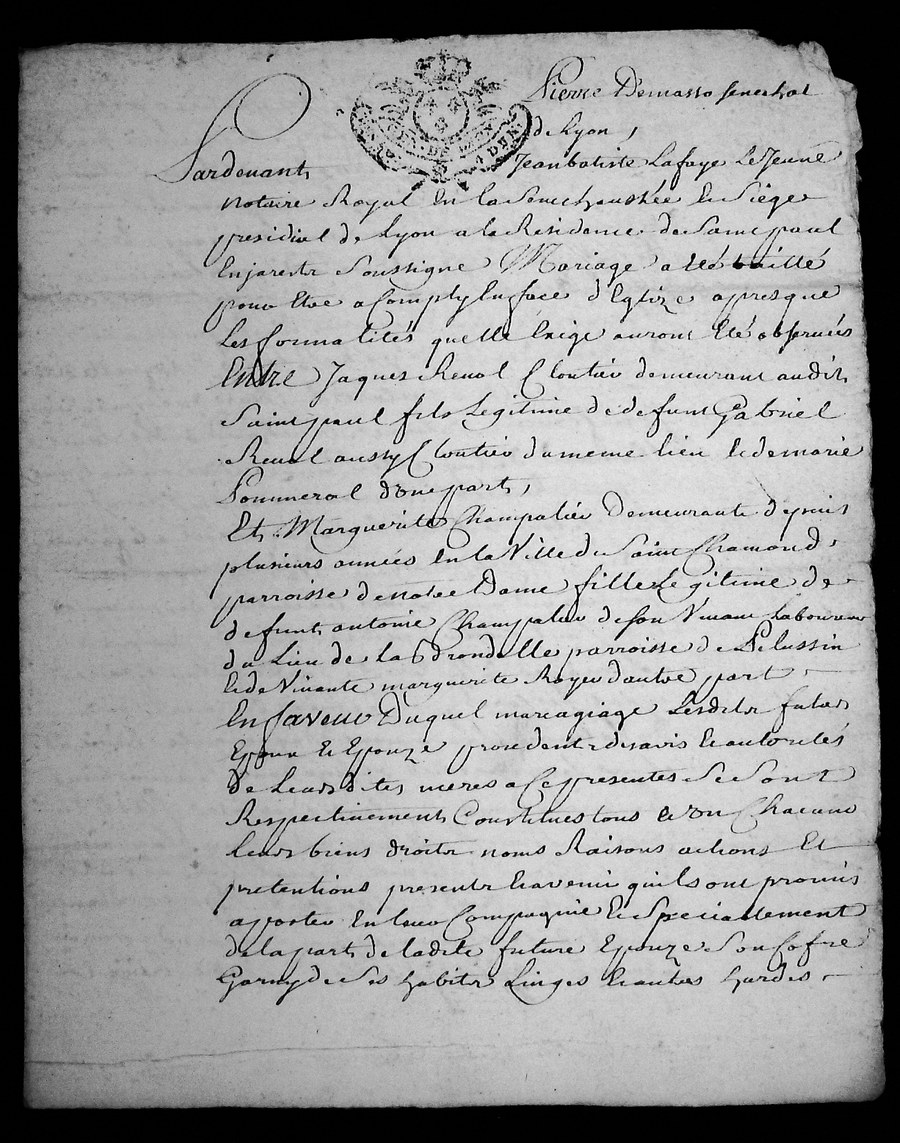 Pierre Demasso senechal
de Lyon,
GEN. DE LYON
Pardevant Jean batiste Lafaye Le Jeune
notaire Royal En la Senechaussée Et Siége
presidial de Lyon a la Residence de Saint paul
En jarestz Soussigne Mariage a été traitté
pour Etre acomply En face d'Eglize apres que
Les formalités quelle Exige auront Eté observées
Entre Jaques Reval Cloutier demeurant audit
Saint paul fils Legitime de defunt Gabriel
Reval aussy Cloutier du meme lieu Et de marie
Pommerol d'une part,
Et Marguerite Champalier Demeurante depuis
plusieurs années En la Ville de Saint Chamond
parroisse de notre Dame fille Legitime de
defunt antoine Champalier de son Vivant Laboureur
du Lieu de la parroisse de Pelussin
Et de Vivante marguerite Royer d'autre part
En faveur Duquel mariagiage Lesdits futurs
Epoux Et Epouze procedent de avis Et autorités
de Leurs dites meres a Ce presentes Se Sont
Respectivement Constitues tous Et un Chacuns
leurs biens droits noms Raisons actions Et
pretentions presents Et avenir quils ont promis
aporter En leur Compagnie Et Specialement
de la part de ladite future Epouze Son Cofre
Garny de Ses habits Linges Et autres hardes